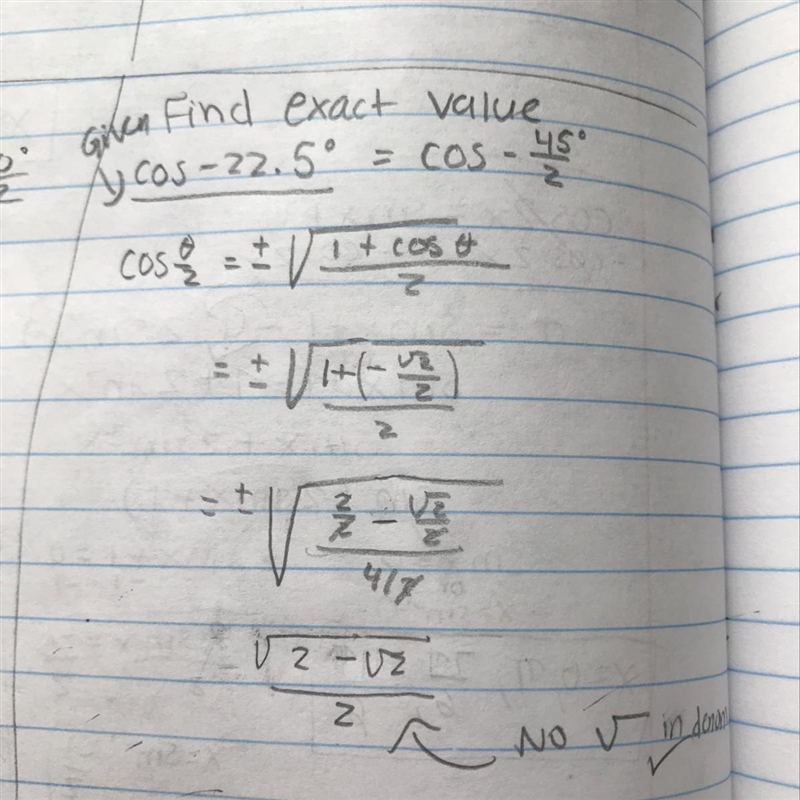 Given Find exact value
1) cos -22.5° = cos - 45°/2
cos θ/2 = ± √((1 + cos θ)/2)
= ± √((1+(-√2/2))/2)
= ± √((2/2 - √2/2)/(4/2))
√(2 - √2)/2
No √ in